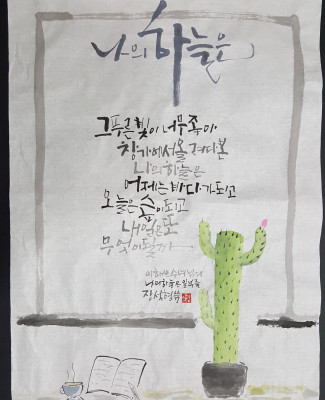 나의 하늘은
그 푸른 빛이 너무 좋아
창가에서 올려다본
나의 하늘은
어제는 바다가 되고
오늘은 숲이 되고
내일은 또
무엇이 될까
이해인 수녀님의
나의 하늘은 일부를